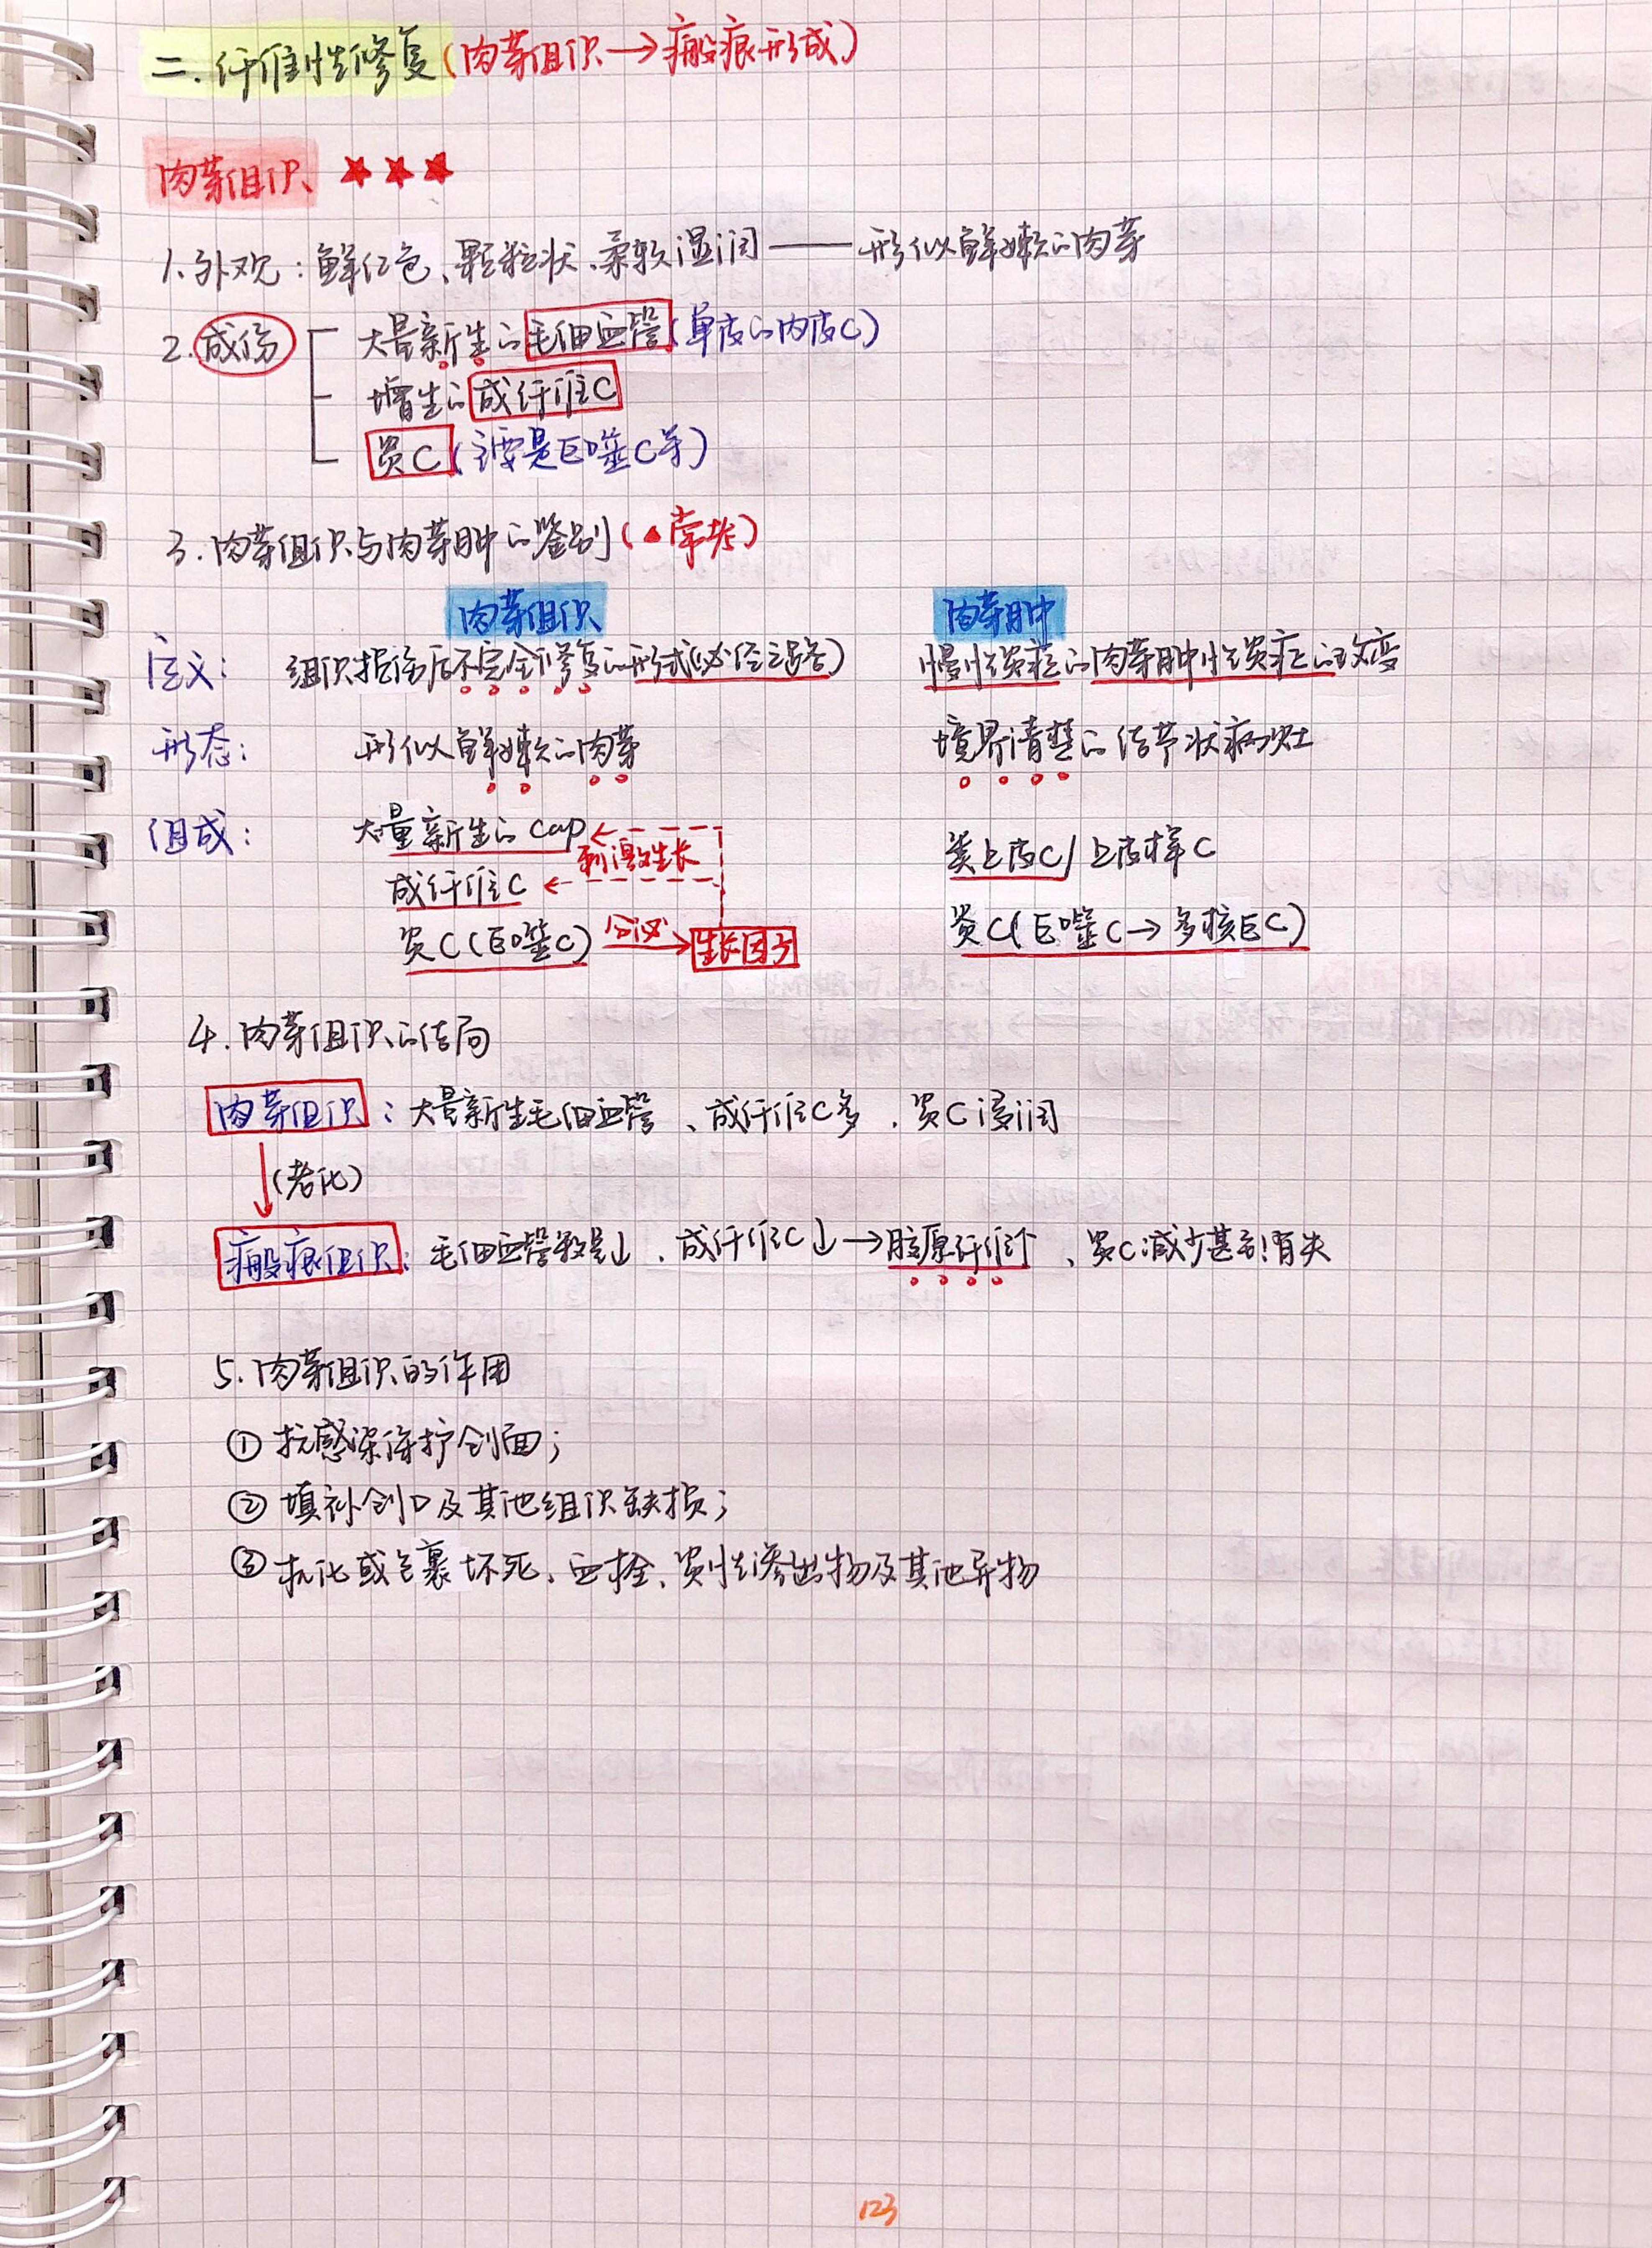 二.纤维性修复(肉芽组织→瘢痕形成)
肉芽组织 ★★★
1.外观：鲜红色、颗粒状、柔软湿润——形似鲜嫩的肉芽
2.成份
大量新生的毛细血管(单皮的内皮C)
增生的成纤维C
炎C(主要是巨噬C等)
3.肉芽组织与肉芽肿的鉴别(▲常考)
肉芽组织 肉芽肿
定义：组织损伤后不完全修复的形式(必经之路) 慢性炎症的肉芽肿性炎症的改变
形态：形似鲜嫩的肉芽 境界清楚的结节状病灶
组成：大量新生的cap 类上皮C/上皮样C
刺激生长
成纤维C
炎C(巨噬C) 分泌→生长因子 炎C(巨噬C→多核巨C)
4.肉芽组织的结局
肉芽组织：大量新生毛细血管、成纤维C多、炎C浸润
↓(老化)
瘢痕组织：毛细血管数量↓、成纤维C↓→胶原纤维↑、炎C减少甚至消失
5.肉芽组织的作用
①抗感染保护创面；
②填补创口及其他组织缺损；
③机化或包裹坏死、血栓、炎性渗出物及其他异物
123